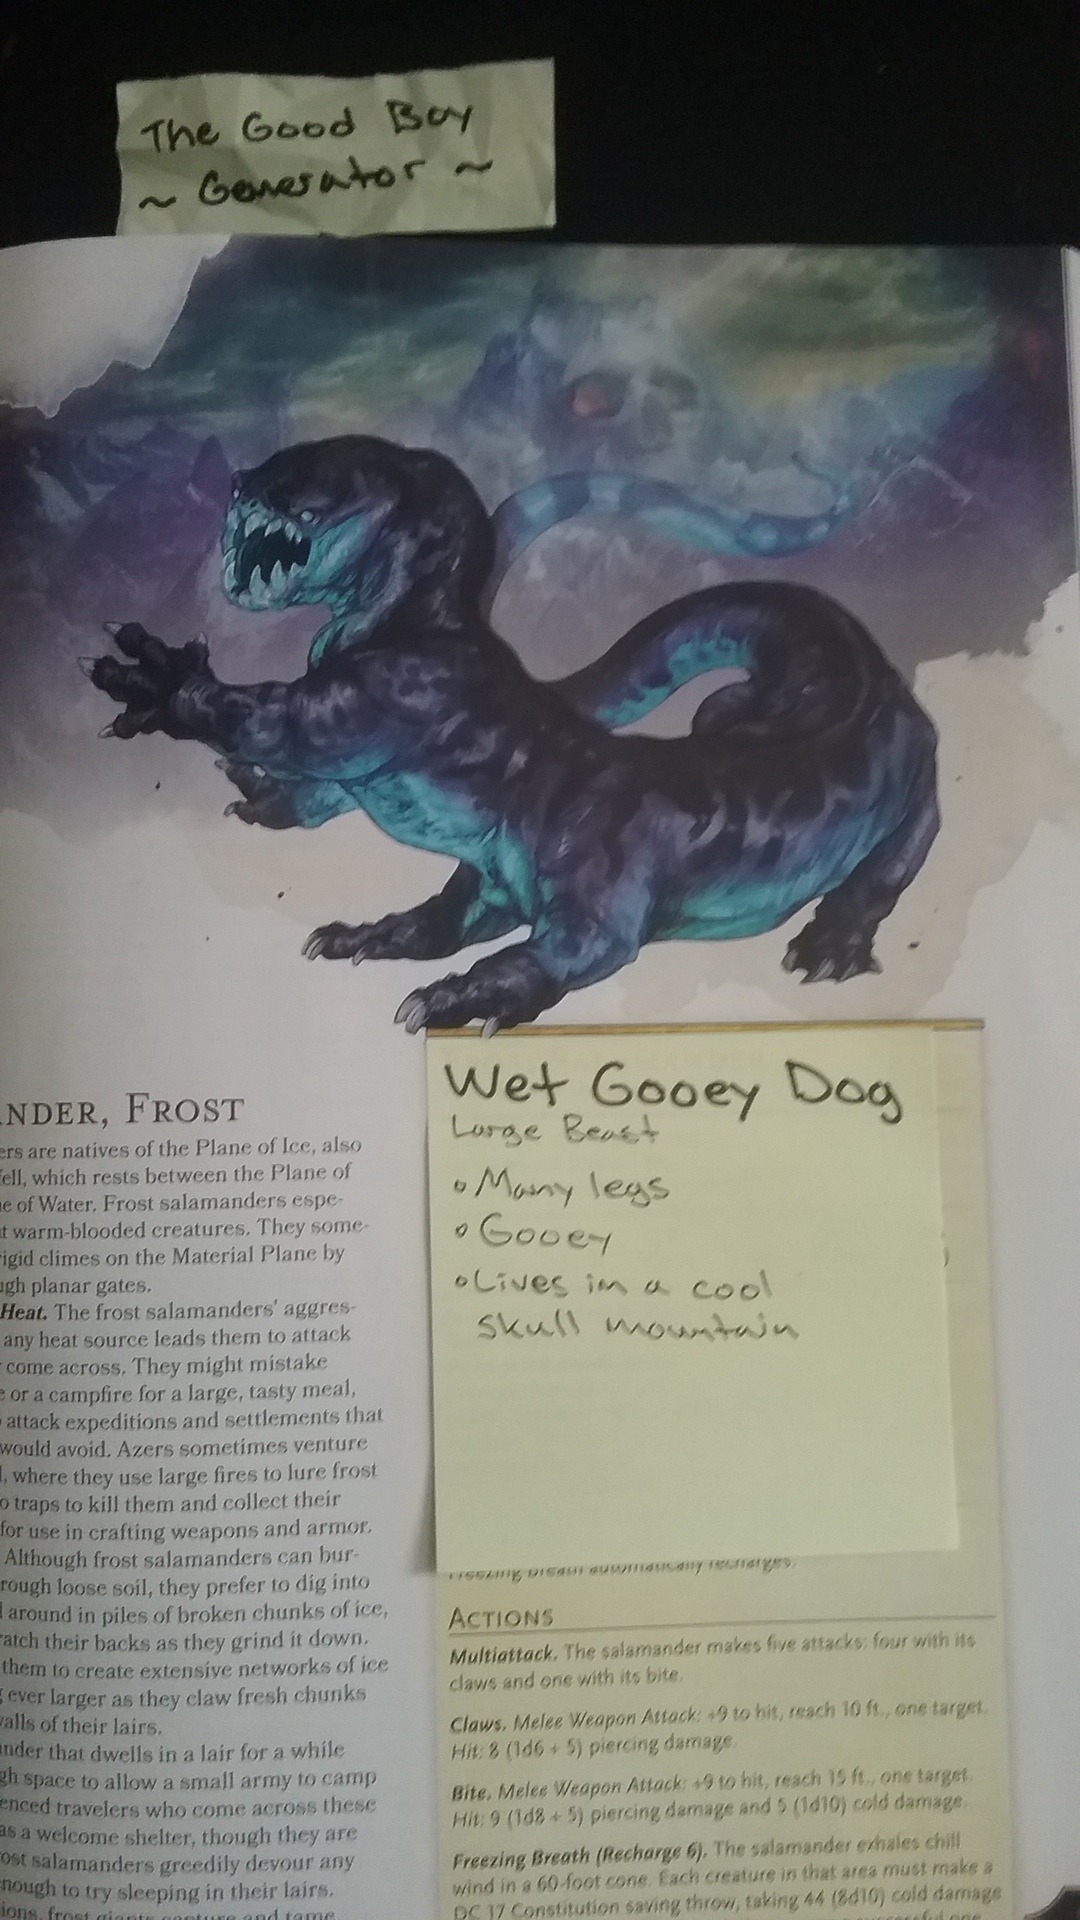 The Good Boy
~ Generator ~
NDER, FROST
ers are natives of the Plane of Ice, also
ell, which rests between the Plane of
e of Water. Frost salamanders espe-
t warm-blooded creatures. They some-
igid climes on the Material Plane by
gh planar gates.
Heat. The frost salamanders' aggres-
any heat source leads them to attack
come across. They might mistake
e or a campfire for a large, tasty meal,
attack expeditions and settlements that
would avoid. Azers sometimes venture
, where they use large fires to lure frost
o traps to kill them and collect their
for use in crafting weapons and armor.
Although frost salamanders can bur-
rough loose soil, they prefer to dig into
around in piles of broken chunks of ice,
atch their backs as they grind it down.
them to create extensive networks of ice
ever larger as they claw fresh chunks
alls of their lairs.
nder that dwells in a lair for a while
gh space to allow a small army to camp
enced travelers who come across these
as a welcome shelter, though they are
ost salamanders greedily devour any
nough to try sleeping in their lairs.
ions, frost giants capture and tame
Wet Gooey Dog
Large Beast
• Many legs
• Gooey
• Lives in a cool
skull mountain
Freezing Breath automatically recharges.
ACTIONS
Multiattack. The salamander makes five attacks: four with its
claws and one with its bite.
Claws. Melee Weapon Attack: +9 to hit, reach 10 ft., one target.
Hit: 8 (1d6 + 5) piercing damage.
Bite. Melee Weapon Attack: +9 to hit, reach 15 ft., one target.
Hit: 9 (1d8 + 5) piercing damage and 5 (1d10) cold damage.
Freezing Breath (Recharge 6). The salamander exhales chill
wind in a 60-foot cone. Each creature in that area must make a
DC 17 Constitution saving throw, taking 44 (8d10) cold damage